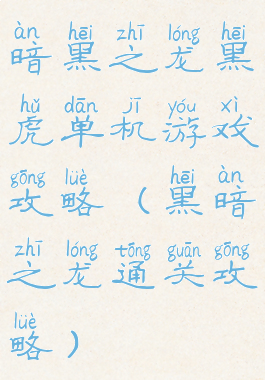 àn hēi zhī lóng hēi
暗黑之龙黑
hǔ dān jī yóu xì
虎单机游戏
gōng lüè hēi àn
攻略（黑暗
zhī lóng tōng guān gōng
之龙通关攻
lüè
略）